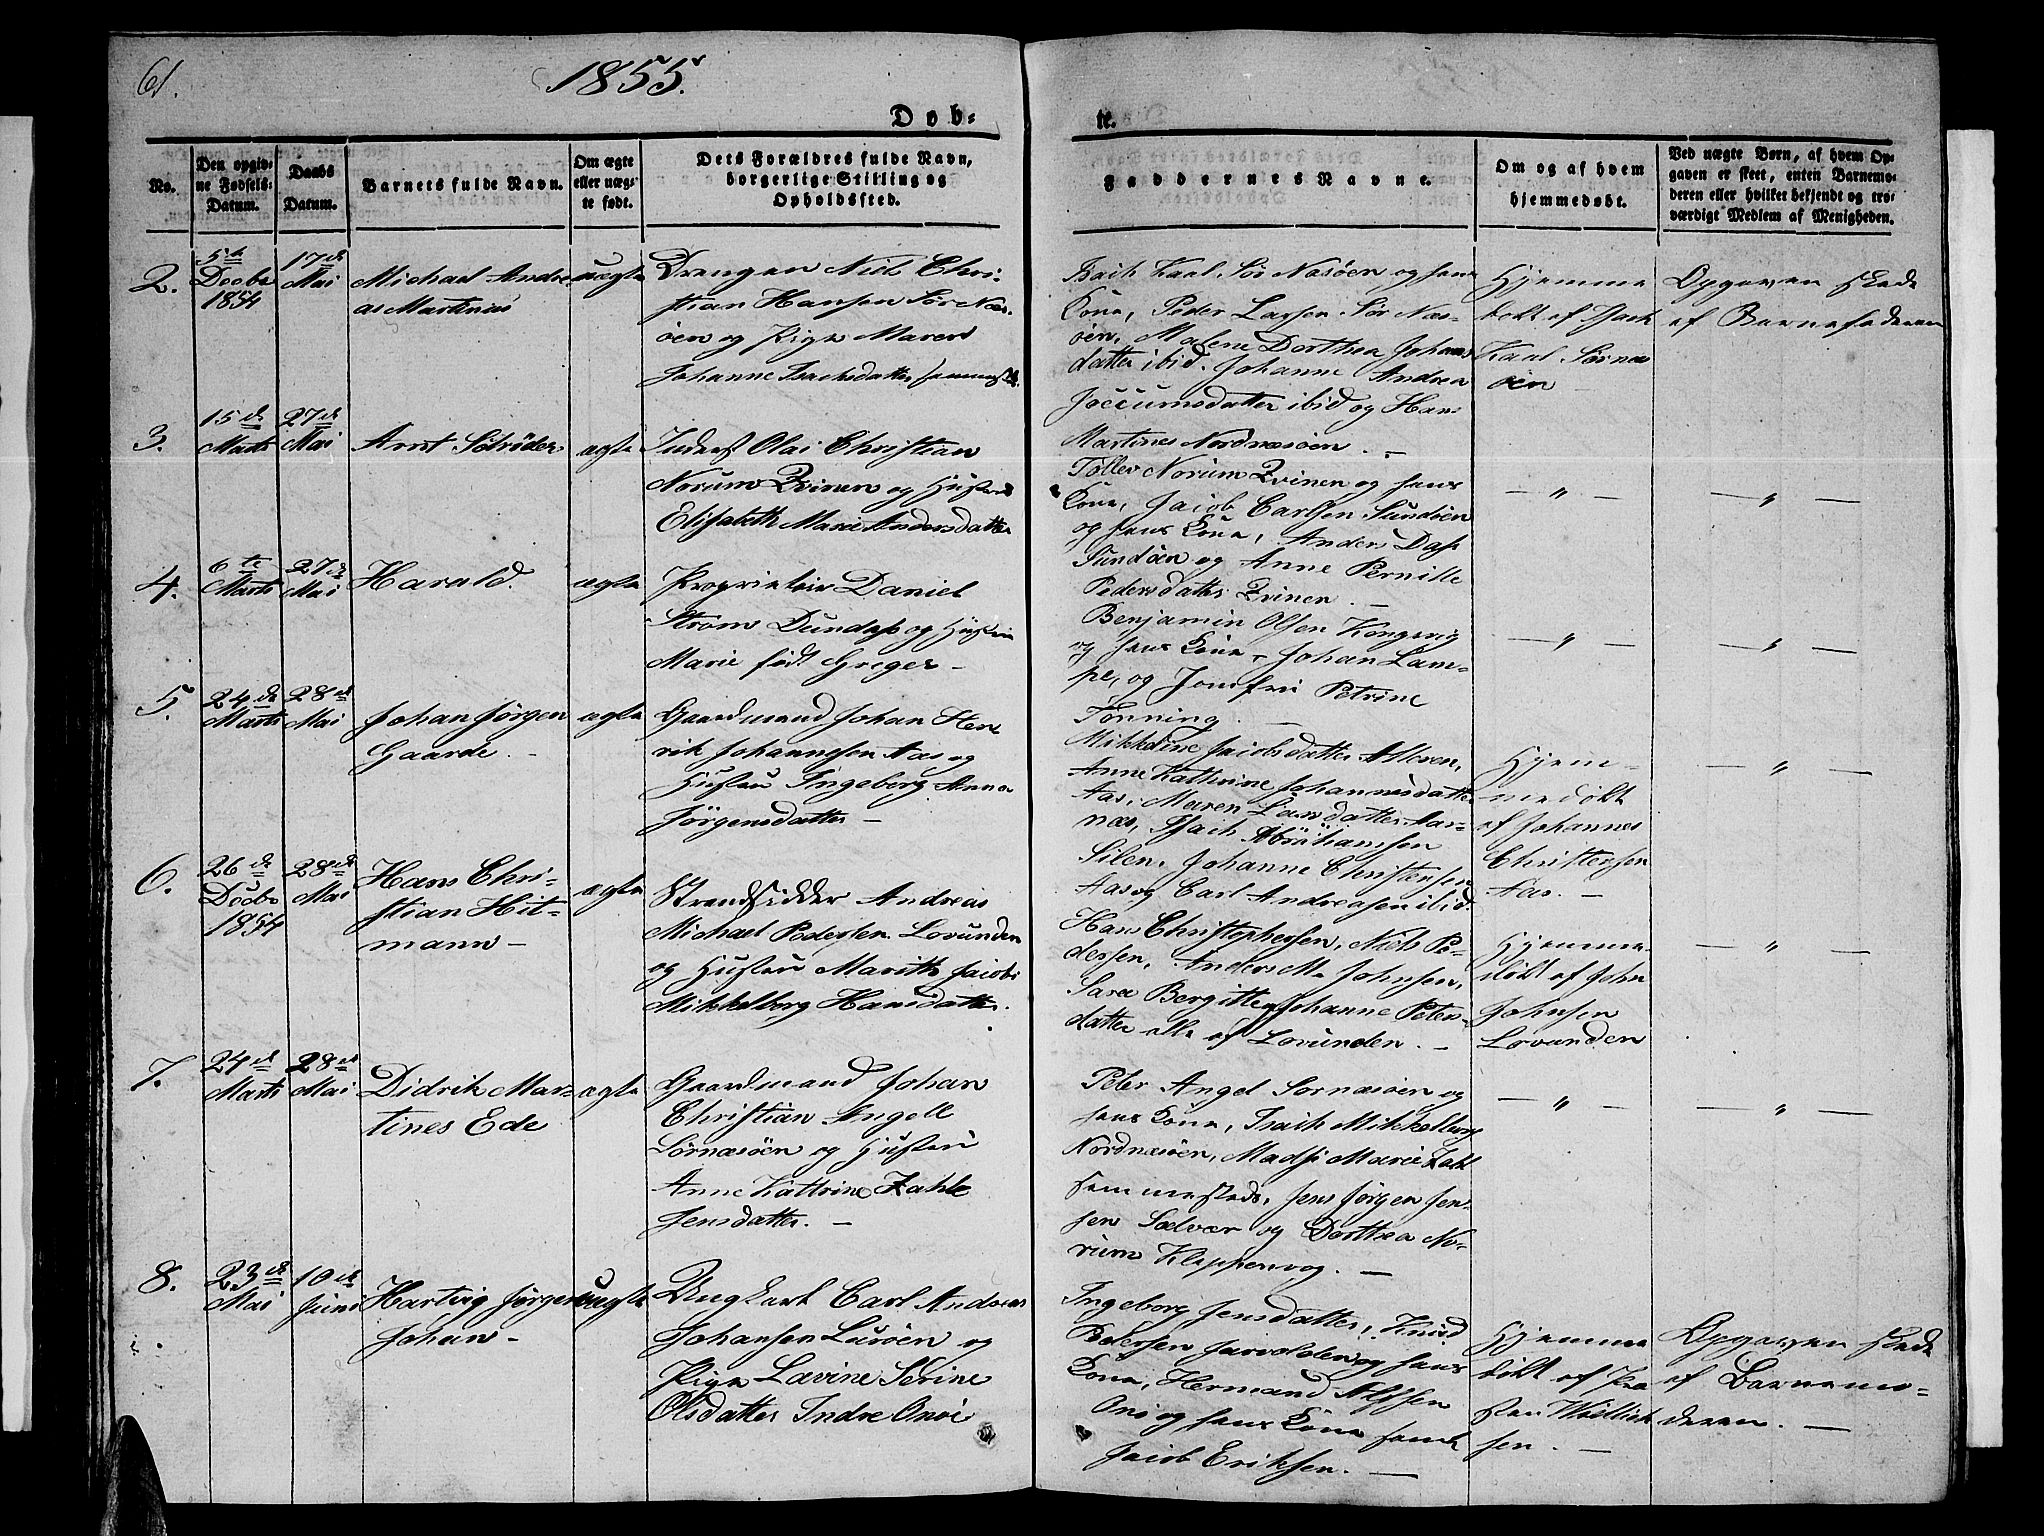 61.
1855.
Døb-
te.
No.
Den opgiv-
ne Fødsels-
Datum.
Daabs
Datum.
Barnets fulde Navn.
Om ægte
eller uæg-
te født.
Dets Forældres fulde Navn,
borgerlige Stilling og
Opholdssted.
Faddernes Navne.
Om og af hvem
hjemmedøbt.
Ved uægte Børn, af hvem Op-
gaven er skeet, enten Barnemo-
deren eller hvilket bekjendt og tro-
værdigt Medlem af Menigheden.
2.
5te
Decbr
1854
17de
Mai
Michael Andre
as Martinus
uægte
Drengen Niels Chri-
stian Hansen Sør Næs-
øen og Pige Maren
Johanne Isachsdatter sammest.
Isach Kaal Sør Næsøen og hans
Kone, Peder Larsen Sør Næs-
øen, Malene Dorthea Johans
datter ibid. Johanne Andrea
Joccumsdatter ibid og Hans
Martines Nordnæsøen. -
Hjemme
døbt af Isach
Kaal Sørnæs
øen
Opgaven skede
af Barnefaderen
3.
15de
Marts
27de
Mai
Arnt Schrøder
ægte
Inderst Olai Christian
Norum Qvinen og Hustru
Elisabeth Marie Andersdatter
Tollev Norum Qvinen og hans
Kone, Jacob Carlsen Sundøen
og hans Kone, Anders Dass
Sundøen og Anne Pernille
Pedersdatter Qvinen. -
— " —
— " —
4.
6te
Marts
27de
Mai
Harald.
ægte
Proprietair Daniel
Strøm Dundas og Hustru
Marie født Greger -
Benjamin Olsen Kongsvig
og hans Kone, Johan Lam-
pe, og Jomfru Petrine
Tønning. -
— " —
— " —
5.
24de
Marts
28de
Mai
Johan Jørgen
Gaarde. -
ægte
Gaardmand Johan Hen
rik Johannesen Aas og
Hustru Ingeborg Anna
Jørgensdatter -
Mikkeline Jacobsdatter Alteren,
Anne Kathrine Johannesdatter
Aas, Maren Larsdatter Aar-
næs, Isach Abrahamsen
Silen, Johanne Christensen
Aas og Carl Andreasen ibid.
Hjem-
medøbt
af Johannes
Christensen
Aas. -
— " —
6.
26de
Decbr
1854
28de
Mai
Hans Chri-
stian Hit-
mann -
ægte
Strandsidder Andreas
Michael Pedersen Lovunden
og Hustru Marith Jacobi
Mikkelborg Hansdatter.
Hans Christophersen, Niels Pe-
dersen, Anders M. Johnsen,
Sara Bergitte, Johanne Peters-
datter alle af Lovunden. -
Hjemme
døbt af John
Johnsen
Lovunden
— " —
7.
24de
Marts
28de
Mai
Didrik Mar-
tines Ede
ægte
Gaardmand Johan
Christian Angell
Sørnæsøen og Hustru
Anne Kattrine Zahle
Jensdatter. -
Peter Angel Sørnæsøen og
hans Kone, Isach Mikkelborg
Nordnæsøen, Madsi Marie
sammesteds, Jens Jørgen Jen-
sen Selvær og Dorthea No-
rum Kleppenvog. -
— " —
— " —
8.
23de
Mai
10de
Juni
Hartvig Jørgen
Johan -
uægte
Ungkarl Carl Andreas
Johansen Lurøen og
Pige Lævine Serine
Olsdatter Indre Onøi
Ingeborg Jensdatter, Knud
Pedersen og hans
Kone, Hermand
Onø og hans Kone samt
Jacob Eriksen. -
Hjemme
døbt af Pe
sen. -
Opgaven skede
af Barnemo-
deren. -